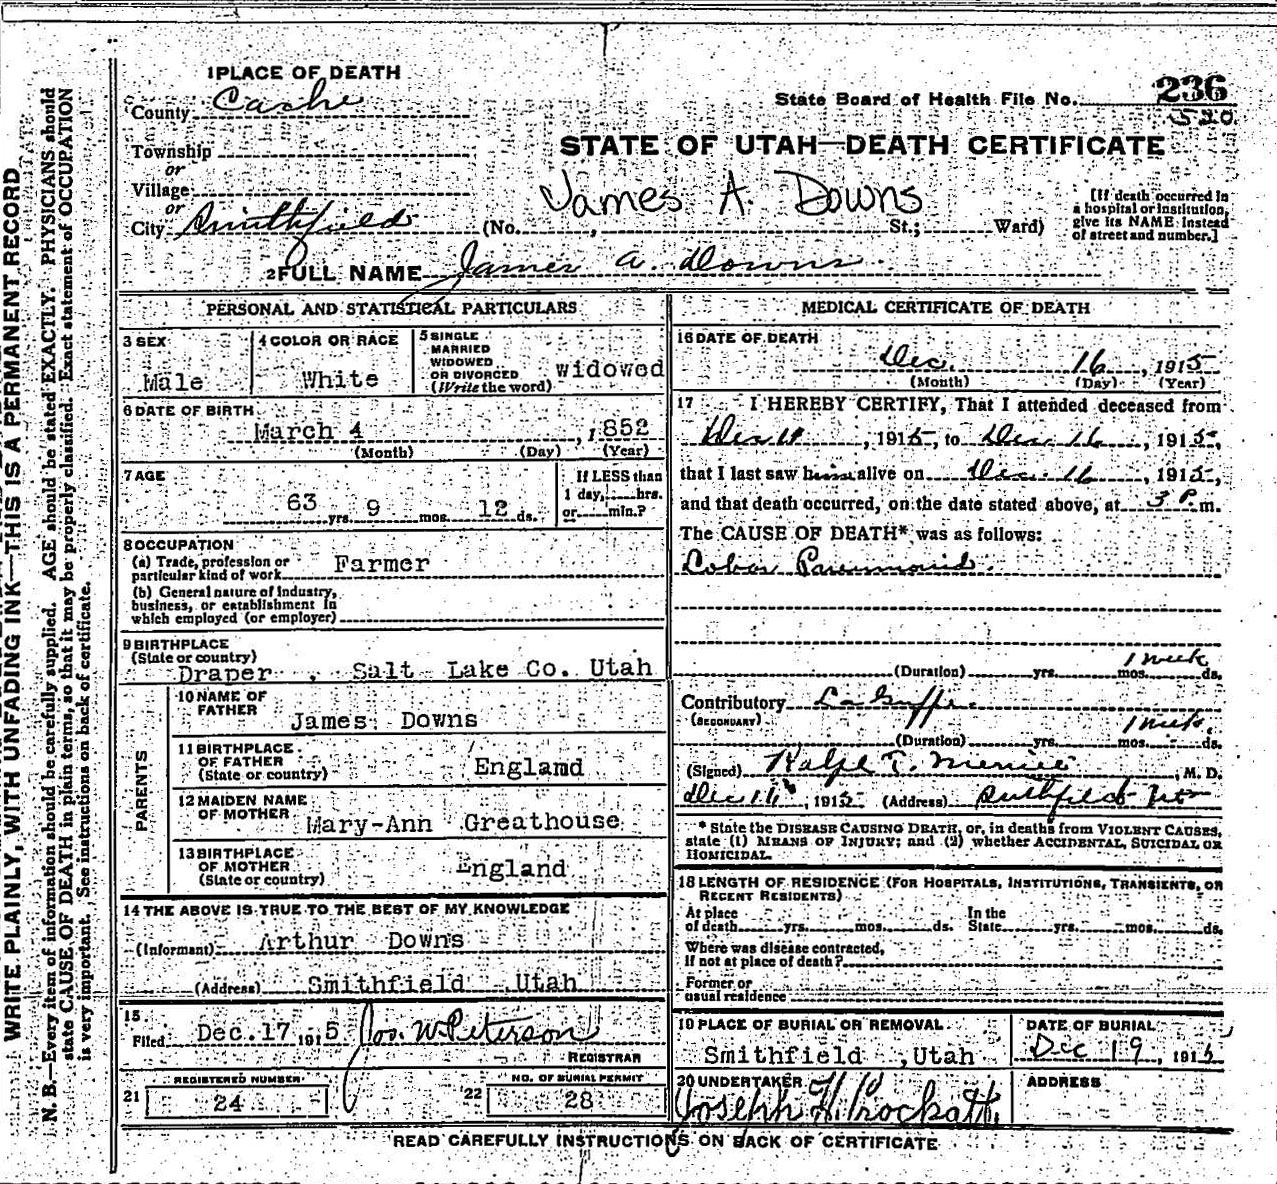 1 PLACE OF DEATH
County Cache
State Board of Health File No. 236
520
Township
or
Village
or
City Smithfield
STATE OF UTAH—DEATH CERTIFICATE
James A. Downs
(No. , St.; Ward)
[If death occurred in
a hospital or institution,
give its NAME instead
of street and number.]
2 FULL NAME James A. Downs
PERSONAL AND STATISTICAL PARTICULARS
3 SEX
Male
4 COLOR OR RACE
White
5 SINGLE
MARRIED
WIDOWED
OR DIVORCED
(Write the word)
widowed
6 DATE OF BIRTH
March 4, 1852
(Month) (Day) (Year)
7 AGE
63 yrs. 9 mos. 12 ds.
If LESS than
1 day, hrs.
or min.?
8 OCCUPATION
(a) Trade, profession or
particular kind of work Farmer
(b) General nature of industry,
business, or establishment in
which employed (or employer)
9 BIRTHPLACE
(State or country)
Draper , Salt Lake Co. Utah
PARENTS
10 NAME OF
FATHER
James Downs
11 BIRTHPLACE
OF FATHER
(State or country)
England
12 MAIDEN NAME
OF MOTHER
Mary-Ann Greathouse
13 BIRTHPLACE
OF MOTHER
(State or country)
England
14 THE ABOVE IS TRUE TO THE BEST OF MY KNOWLEDGE
(Informant) Arthur Downs
(Address) Smithfield Utah
15
Filed Dec. 17 1915 Jos. W Peterson
REGISTRAR
21 REGISTERED NUMBER
24
22 NO. OF BURIAL PERMIT
28
MEDICAL CERTIFICATE OF DEATH
16 DATE OF DEATH
Dec. 16, 1915
(Month) (Day) (Year)
17 I HEREBY CERTIFY, That I attended deceased from
Dec 11, 1915, to Dec. 16, 1915,
that I last saw him alive on Dec. 16, 1915,
and that death occurred, on the date stated above, at 3 P. m.
The CAUSE OF DEATH* was as follows:
Lobar Pneumonia.
1 week
(Duration) yrs. mos. ds.
Contributory La Grippe.
(SECONDARY)
1 week.
(Duration) yrs. mos. ds.
(Signed) Ralph T. Merrill, M. D.
Dec 16, 1915 (Address) Smithfield
* State the DISEASE CAUSING DEATH, or, in deaths from VIOLENT CAUSES,
state (1) MEANS OF INJURY; and (2) whether ACCIDENTAL, SUICIDAL OR
HOMICIDAL.
18 LENGTH OF RESIDENCE (FOR HOSPITALS, INSTITUTIONS, TRANSIENTS, OR
RECENT RESIDENTS)
At place
of death yrs. mos. ds.
In the
State yrs. mos. ds.
Where was disease contracted,
If not at place of death?
Former or
usual residence
19 PLACE OF BURIAL OR REMOVAL
Smithfield ,Utah
DATE OF BURIAL
Dec 19, 1915
20 UNDERTAKER
Joseph H.
ADDRESS
READ CAREFULLY INSTRUCTIONS ON BACK OF CERTIFICATE
WRITE PLAINLY, WITH UNFADING INK—THIS IS A PERMANENT RECORD
N. B.—Every item of information should be carefully supplied. AGE should be stated EXACTLY. PHYSICIANS should
state CAUSE OF DEATH in plain terms, so that it may be properly classified. Exact statement of OCCUPATION
is very important. See instructions on back of certificate.